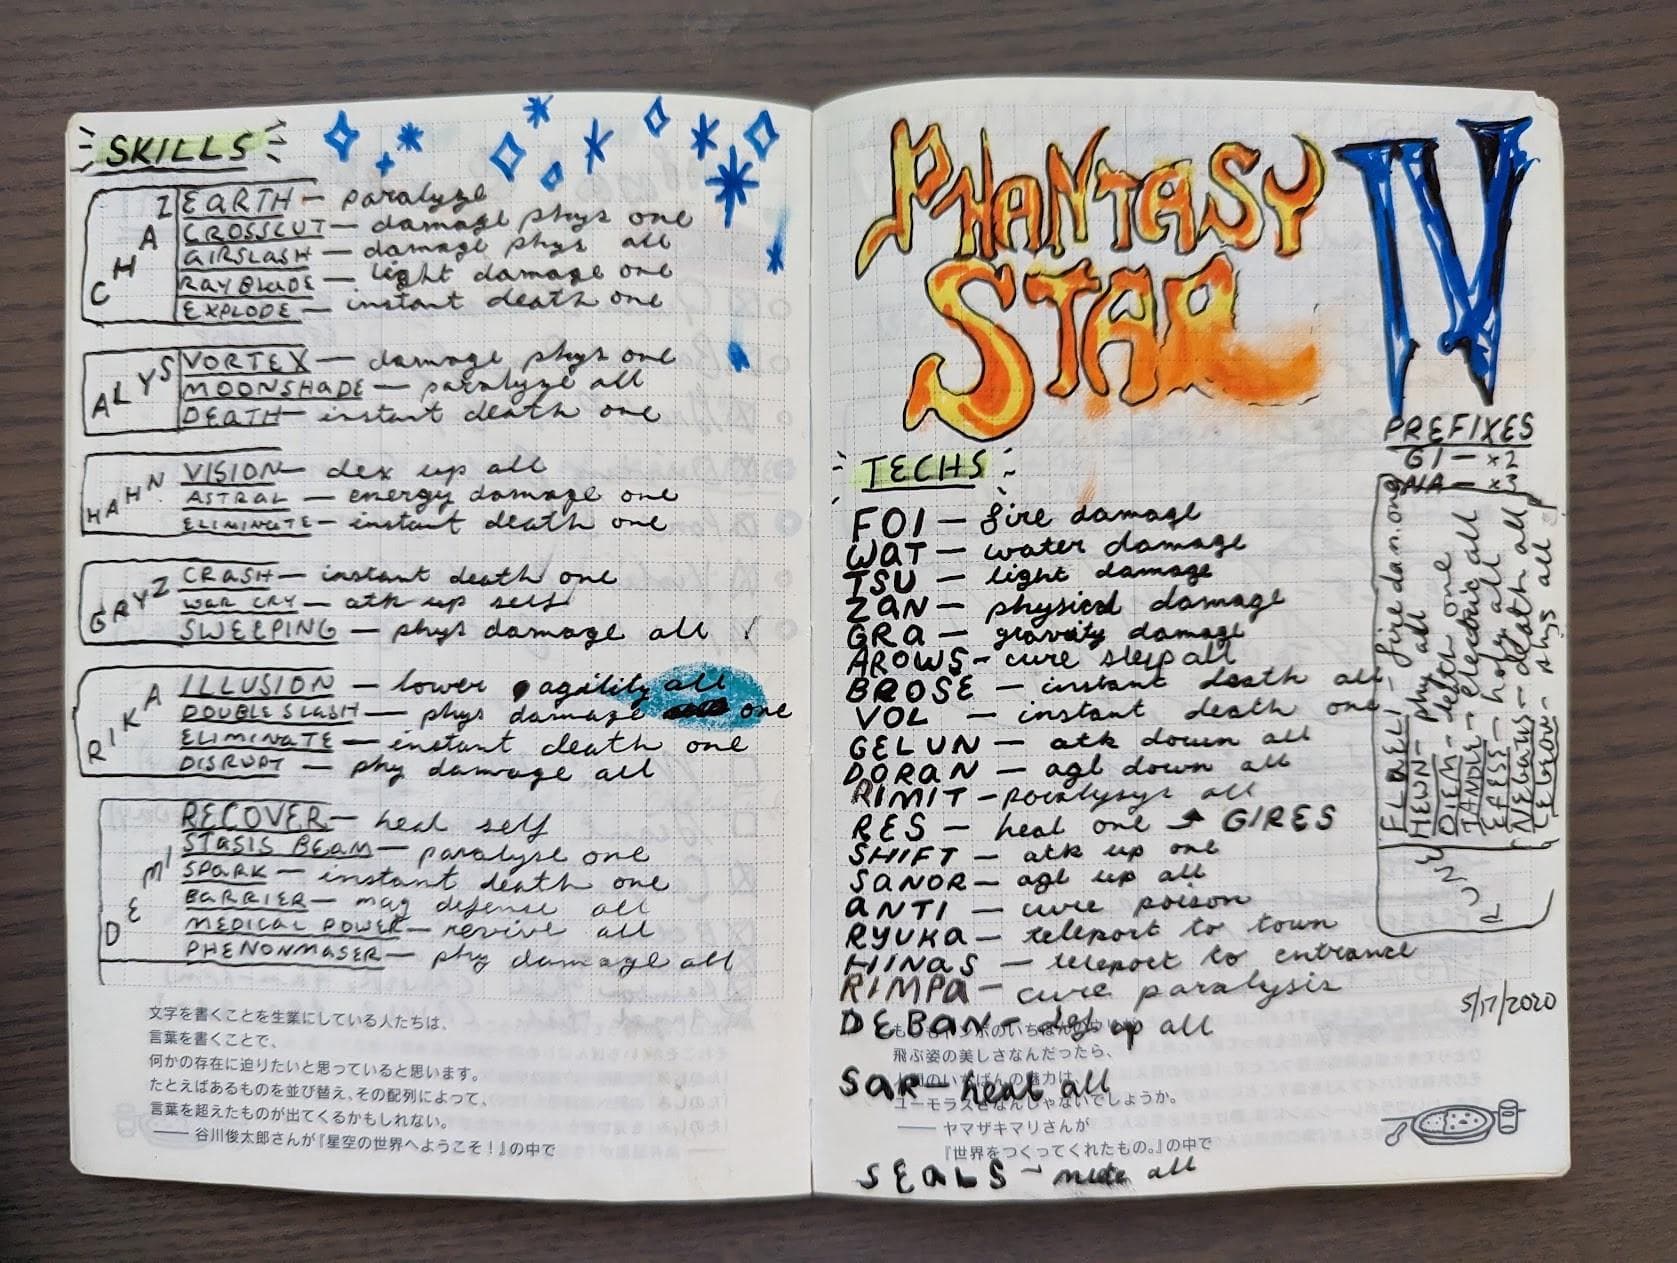 SKILLS
CHAZ
EARTH - paralyze
CROSSCUT - damage phys one
AIRSLASH - damage phys all
RAYBLADE - light damage one
EXPLODE - instant death one
ALYS
VORTEX - damage phys one
MOONSHADE - paralyze all
DEATH - instant death one
HAHN
VISION - dex up all
ASTRAL - energy damage one
ELIMINATE - instant death one
GRYZ
CRASH - instant death one
WAR CRY - atk up self
SWEEPING - phys damage all
RIKA
ILLUSION - lower agility all
DOUBLE SLASH - phys damage one
ELIMINATE - instant death one
DISRUPT - phy damage all
DEMI
RECOVER - heal self
STASIS BEAM - paralyse one
SPARK - instant death one
BARRIER - mag defense all
MEDICAL POWER - revive all
PHENONMASER - phy damage all
文字を書くことを生業にしている人たちは、
言葉を書くことで、
何かの存在に迫りたいと思っていると思います。
たとえばあるものを並び替え、その配列によって、
言葉を超えたものが出てくるかもしれない。
── 谷川俊太郎さんが『星空の世界へようこそ！』の中で
PHANTASY
STAR
IV
PREFIXES
GI - x2
NA - x3
TECHS
FOI - fire damage
WAT - water damage
TSU - light damage
ZAN - physical damage
GRA - gravity damage
AROWS - cure sleep all
BROSE - instant death all
VOL - instant death one
GELUN - atk down all
DORAN - agl down all
RIMIT - paralysys all
RES - heal one → GIRES
SHIFT - atk up one
SANOR - agl up all
ANTI - cure poison
RYUKA - teleport to town
HINAS - teleport to entrance
RIMPA - cure paralysis
DEBAN - def up all
SAR - heal all
SEALS - mute all
RUNE
FLAELI - fire dam. one
HEWN - phy all
DIEM - death one
TANDLE - electric all
EFESS - holy all
NEGATIS - death all
LEGEON - phys all
5/17/2020
飛ぶ姿の美しさなんだったら、
ユーモラスさなんじゃないでしょうか。
── ヤマザキマリさんが
『世界をつくってくれたもの。』の中で